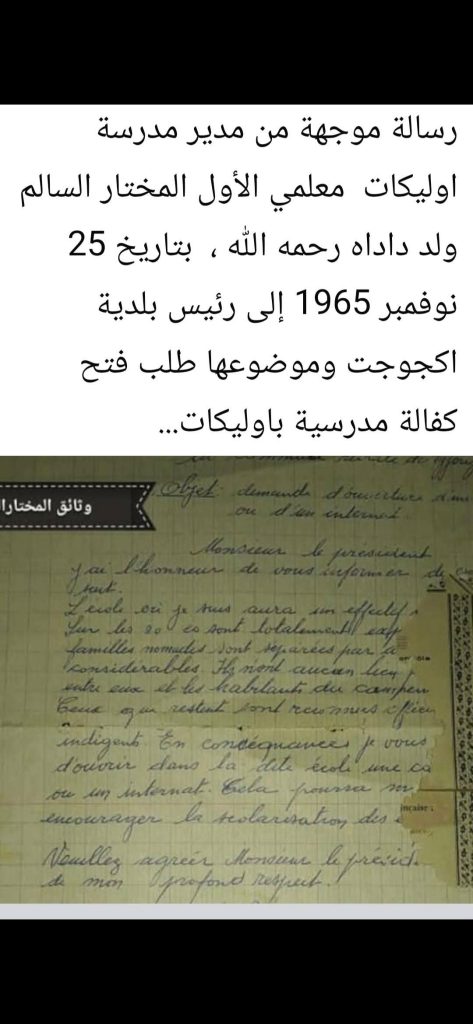 رسالة موجهة من مدير مدرسة
اوليكات معلمي الأول المختار السالم
ولد داداه رحمه الله ، بتاريخ 25
نوفمبر 1965 إلى رئيس بلدية
اكجوجت وموضوعها طلب فتح
كفالة مدرسية باوليكات...
وثائق المختارا
Objet: demande d'ouverture d'un
ou d'un internat
Monsieur le président
J'ai l'honneur de vous informer de
suit.
L'école où je suis aura un effectif
Sur les 20 sont totalement
familles nomades sont separées par
considerables. Ils n'ont aucun lien
entre eux et les habitants du campem
Ceux qui restent sont reconnus
indigents. En concéquances je vous
d'ouvrir dans la dite école une ca
ou un internat. Cela pourra m
encourager la scolarisation des
ncaise:
Veuillez agréer Monsieur le présid
de mon profond respect.